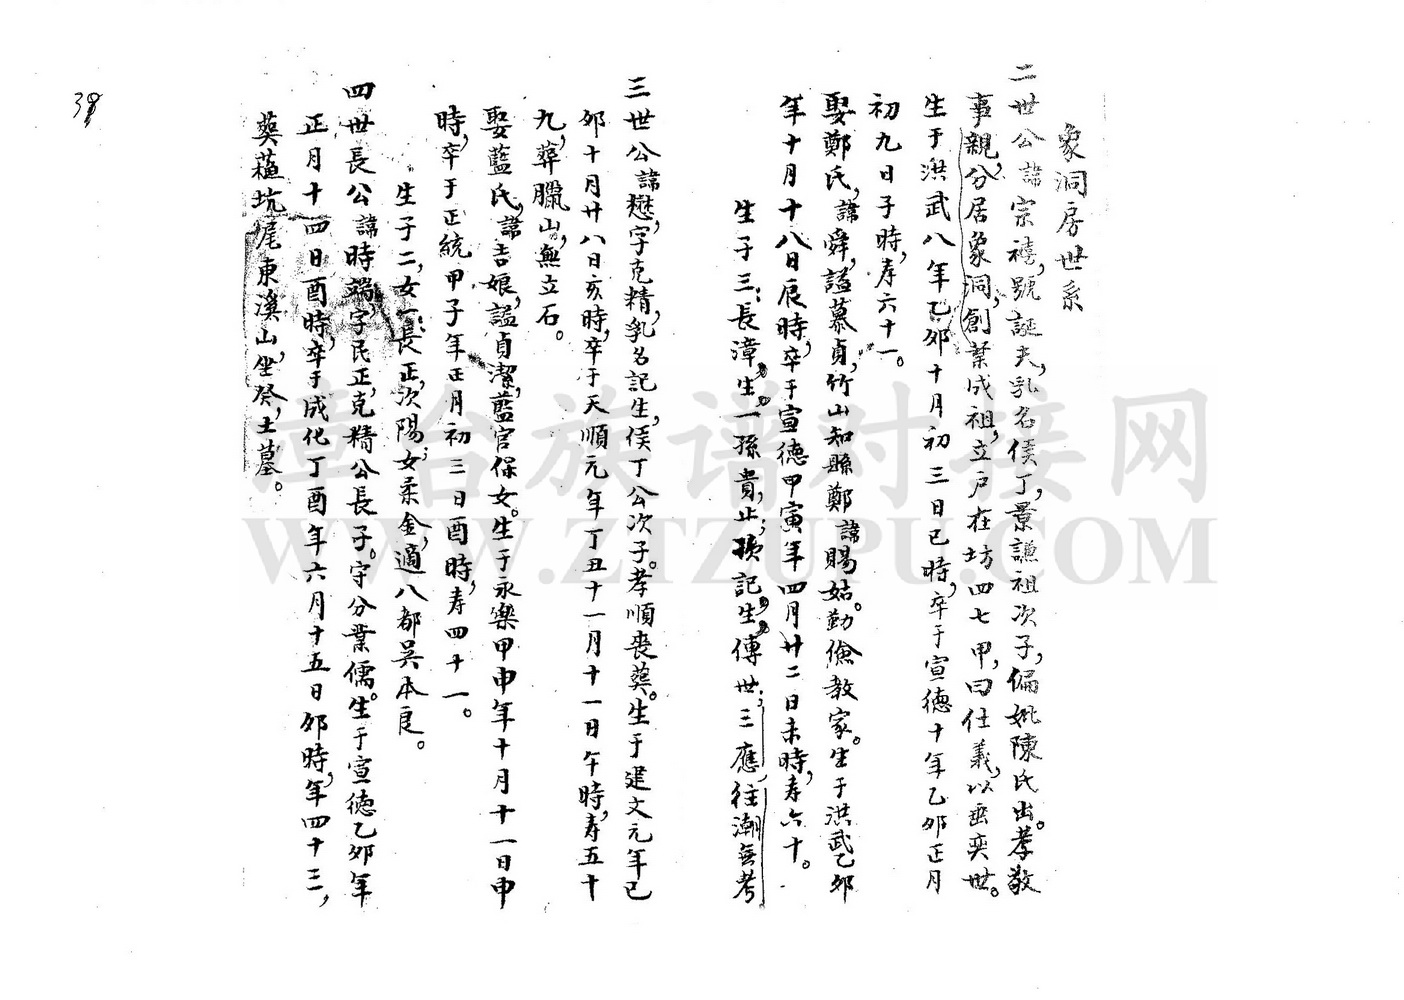 象洞房世系
二世公諱宗禧，號誕夫，乳名侯丁，景謙祖次子，偏妣陳氏出。孝敬
事親，分居象洞，創業成祖，立戶在坊四七甲，曰仕義，以垂奕世。
生于洪武八年乙卯十月初三日巳時，卒于宣德十年乙卯正月
初九日子時，寿六十一。
娶鄭氏，諱舜，諡慕貞，竹山知縣鄭諱賜姑。勤儉教家。生于洪武乙卯
年十月十八日辰時，卒于宣德甲寅年四月廿二日未時，寿六十。
生子三：長漳生，一孫貴，止；次記生，傳世；三應往潮無考
三世公諱懋，字克精，乳名記生，侯丁公次子。孝順喪葬。生于建文元年己
卯十月廿八日亥時，卒于天順元年丁丑十一月十一日午時，寿五十
九，葬臘山，無立石。
娶藍氏，諱吉娘，諡貞潔，藍官保女。生于永樂甲申年十月十一日申
時，卒于正統甲子年正月初三日酉時，寿四十一。
生子二，女一：長正，次陽；女柔金，適八都吳本良。
四世長公諱時端，字民正，克精公長子。守分業儒。生于宣德乙卯年
正月十四日酉時，卒于成化丁酉年六月十五日卯時，年四十三，
葬蘓坑尾東溪山，坐癸，土墓。
39
章台族谱对接网
WWW.ZTZUPU.COM